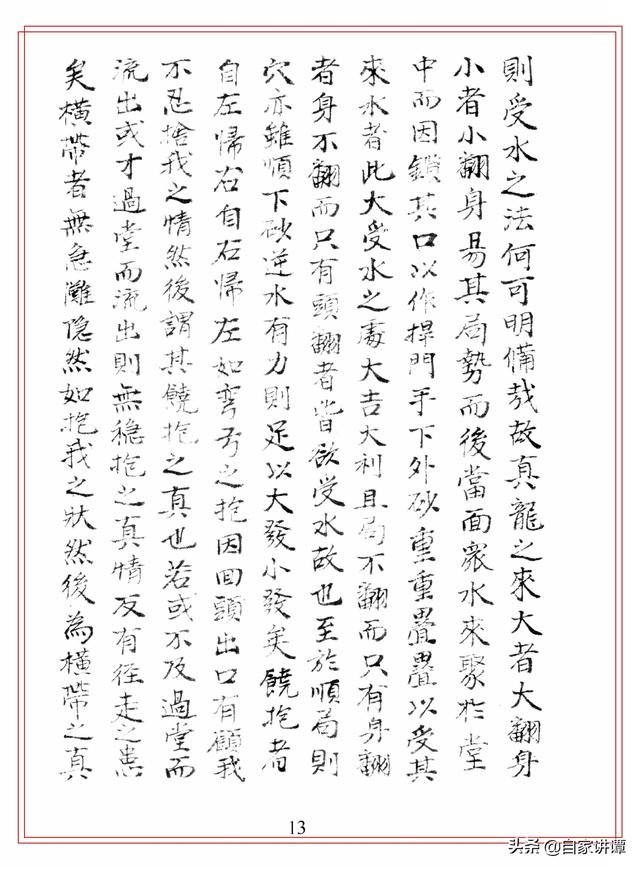 則受水之法何可明備哉故真龍之來大者大翻身
小者小翻身易其局勢而後當面衆水來聚於堂
中而因鎖其口以作捍門手下外砂重重疊疊以受其
來水者此大受水之處大吉大利且局不翻而只有身翻
者身不翻而只有頭翻者皆欲受水故也至於順局則
穴亦雖順下砂逆水有力則足以大發小發矣饒抱者
自左歸右自右歸左如弯弓之抱因回頭出口有顧我
不忍捨我之情然後謂其饒抱之真也若或不及過堂而
流出或才過堂而流出則無穩抱之真情反有径走之患
矣橫帶者無急灘隐然如抱我之狀然後為橫帶之真
13
头条 @自家讲谭